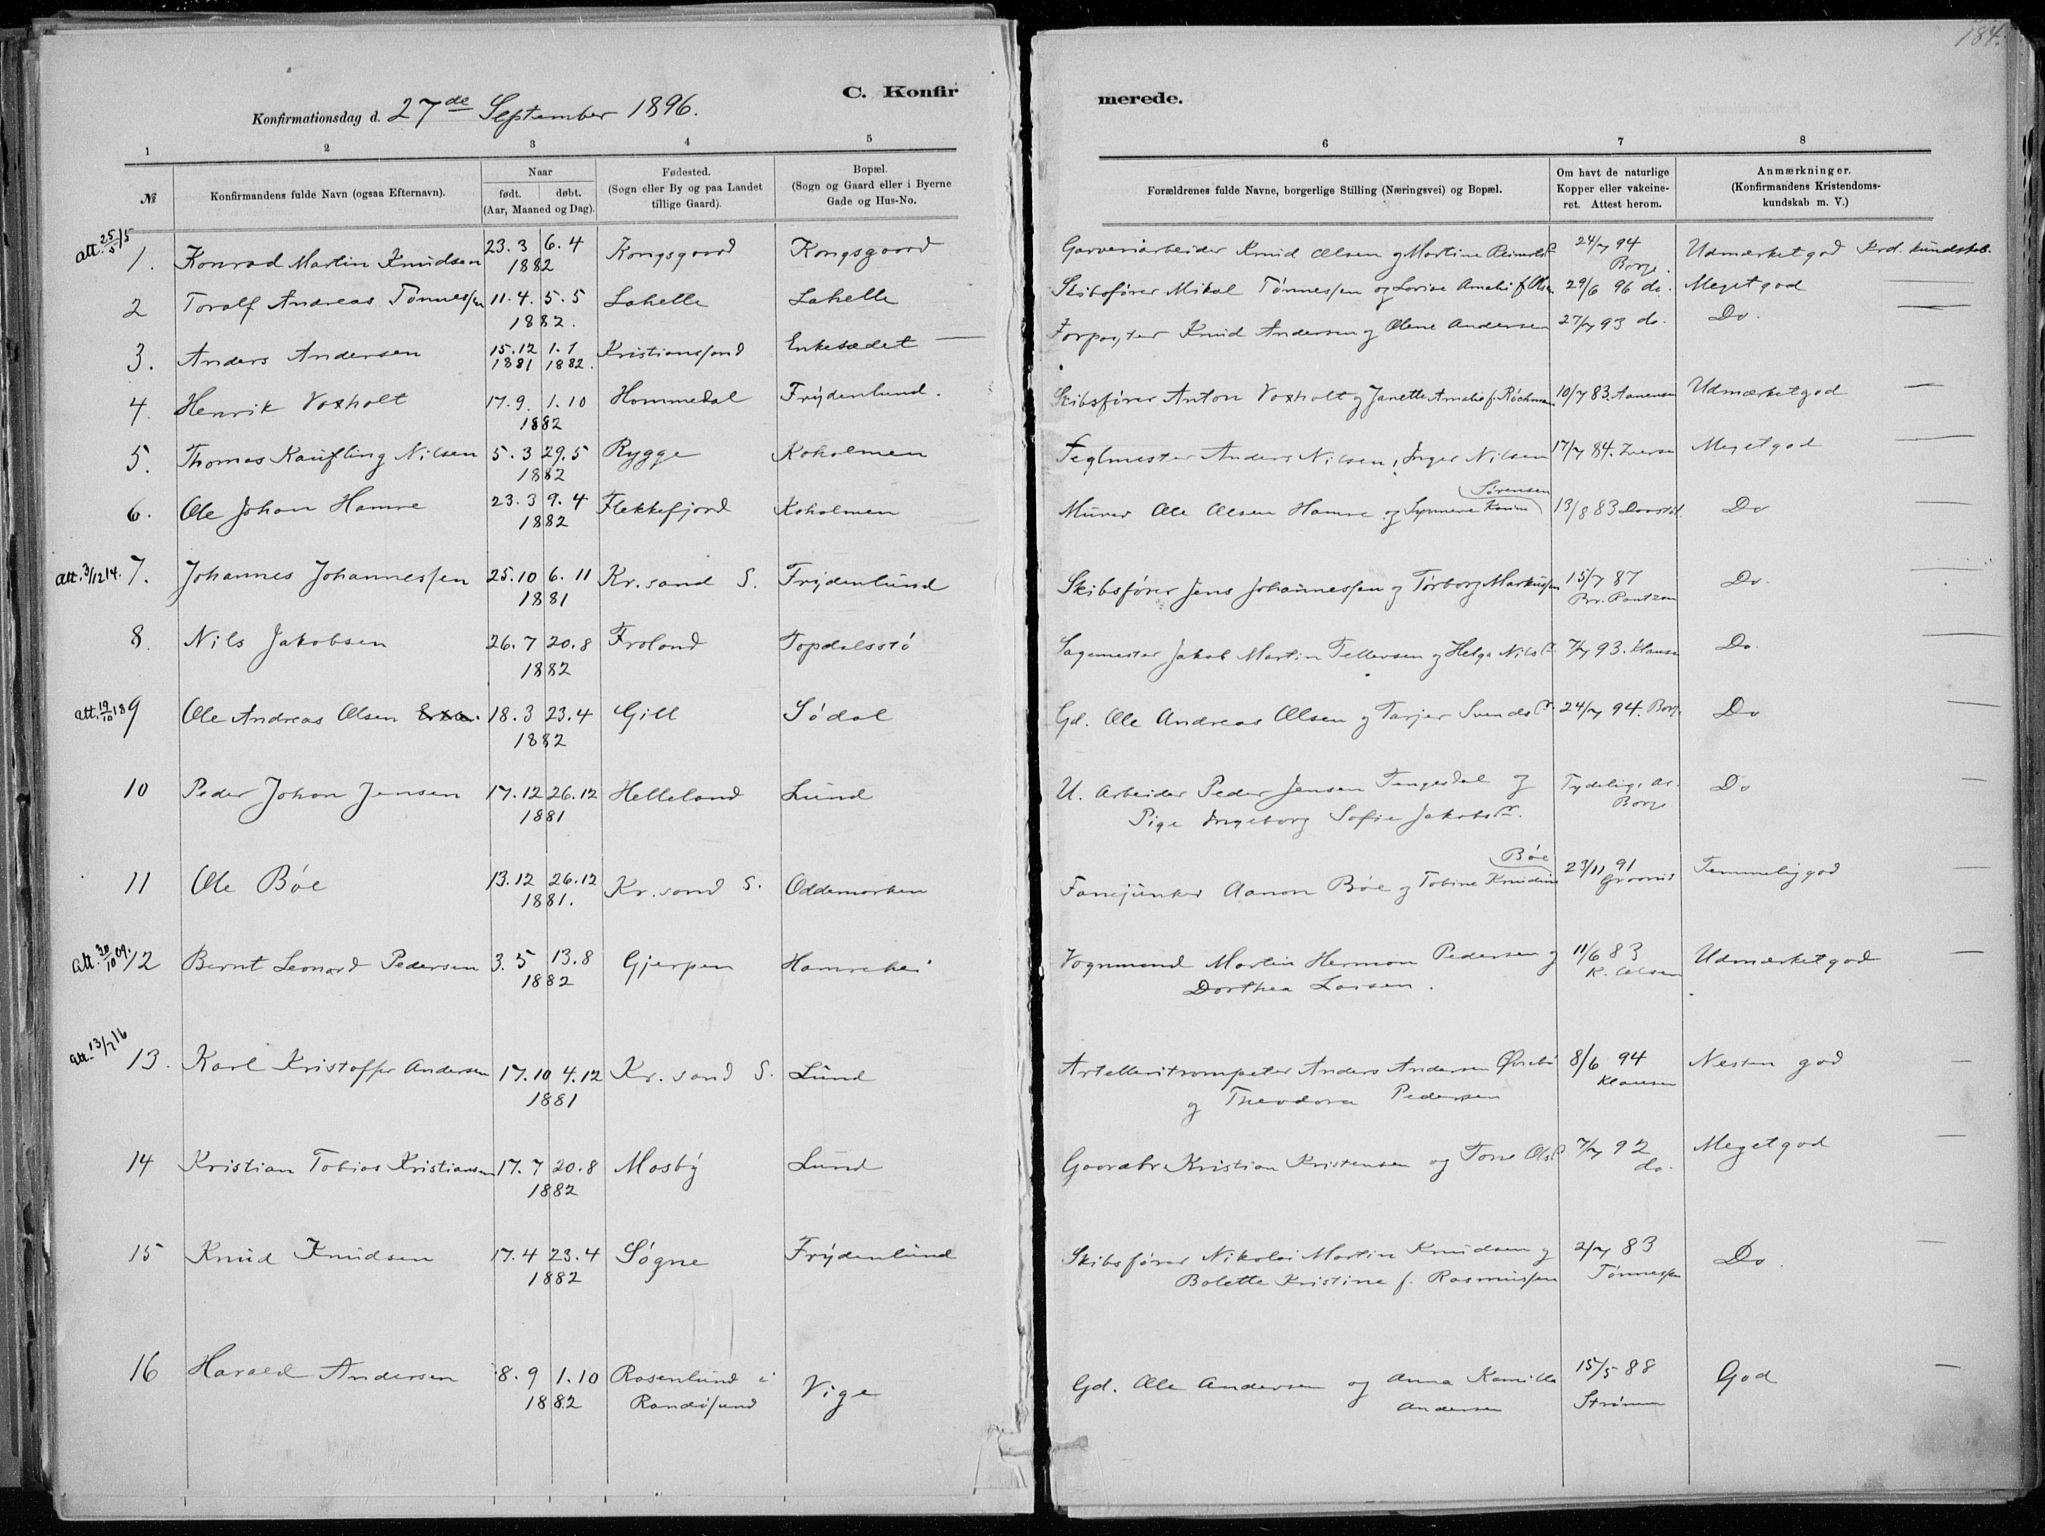 184.
C. Konfir merede.
Konfirmationsdag d. 27de September 1896.
1 2 3 4 5 6 7 8
№ Konfirmandens fulde Navn (ogsaa Efternavn). Naar født. døbt. (Aar, Maaned og Dag). Fødested. (Sogn eller By og paa Landet tillige Gaard). Bopæl. (Sogn og Gaard eller i Byerne Gade og Hus-No. Forældrenes fulde Navne, borgerlige Stilling (Næringsvei) og Bopæl. Om havt de naturlige Kopper eller vakcineret. Attest herom. Anmærkninger. (Konfirmandens Kristendomskundskab m. V.)
1. Konrad Martin Knudsen 23.3 6.4 Kongsgaard Kongsgaard Garveriarbeider Knud Olsen og Martine 24/7 94 Udmærket god Krd. kundskab.
1882 Borge.
2 Toralf Andreas Tønnessen 11.4. 5.5 Lahelle Lahelle Skibsfører Mikal Tønnessen og Lovise Amalie f. 29/6 96 do. Meget god —
1882.
3. Anders Andersen 15.12 1.1 Kristianssand Enkesædet — Knud Andersen og Olene Andersen 27/7 93 do. Do. —
1881 1882.
4. Henrik Voxholt 17.9. 1.10 Hommedal Frydenlund. Skibsfører Anton Voxholt og Janette Amalie f. 10/7 83. Aanensen Udmærket god —
1882
5. Thomas Kaufling Nilsen 5.3 29.5 Rygge Koholmen Teglmester Anders Nilsen, Inger Nilsen 17/7 84. Meget god —
1882
Sørensen
6. Ole Johan Hamre 23.3 9.4 Flekkefjord Koholmen Murer Ole Olsen Hamre og Karine 13/8 83 Do —
1882
Att. 3/12 14. 7. Johannes Johannessen 25.10 6.11 Kr.sand S. Frydenlund Skibsfører Jens Johannessen og Torborg Markussen 15/7 87 Do. —
1881
8. Nils Jakobsen 26.7 20.8 Froland Topdalsstø Sagmester Jakob Martin Tellevsen og Helga Nilsd. 7/7 93. Klausen Do. —
1882
Att. 19/10 18 9 Ole Andreas Olsen 18.3 23.4 Gill Sødal Gd. Ole Andreas Olsen og Tarjer Svendsdr 24/7 94. Borge Do —
1882
10 Peder Johan Jensen 17.12 26.12 Helleland Lund U. Arbeider Peder Jensen Tengesdal og Tydelige ar. Do —
1881 Pige Ingeborg Sofie Jakobsdr. Borge
Bøe
11 Ole Bøe 13.12 26.12 Kr.sand S. Oddemarken Fanejunker Aanon Bøe og Tobine Knudine 23/11 91 Temmelig god —
1881.
Att. 30/10 09. 12 Bernt Leonard Pedersen 3.5 13.8 Gjerpen Hamrehei Vognmand Martin Herman Pedersen og 11/6 83 Udmærket god —
1882 Dorthea Larsen. K. Olsen
Att. 13/7 16 13. Karl Kristoffer Andersen 17.10 4.12 Kr.sand S. Lund Artelleritrompeter Anders Andersen 8/6 94 Nesten god —
1881 og Theodora Pedersen Klausen
14 Kristian Tobias Kristiansen 17.7 20.8 Mosby Lund Gaardbr. Kristian Kristensen og Tone Olsd 7/7 92 Meget god —
1882 do.
15 Knud Knudsen 17.4 23.4 Søgne Frydenlund Skibsfører Nikolai Martin Knudsen og 2/7 83 Do. —
1882 Bolette Kristine f. Rasmussen Tønnessen
16 Harald Andersen 8.9 1.10 Rosenlund i Vige Gd. Ole Andersen og Anna Kamilla 15/5 88 God —
1882 Randøsund Andersen Strømme